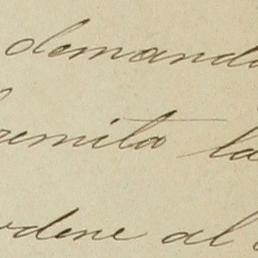 demanda
remita la
ordene al